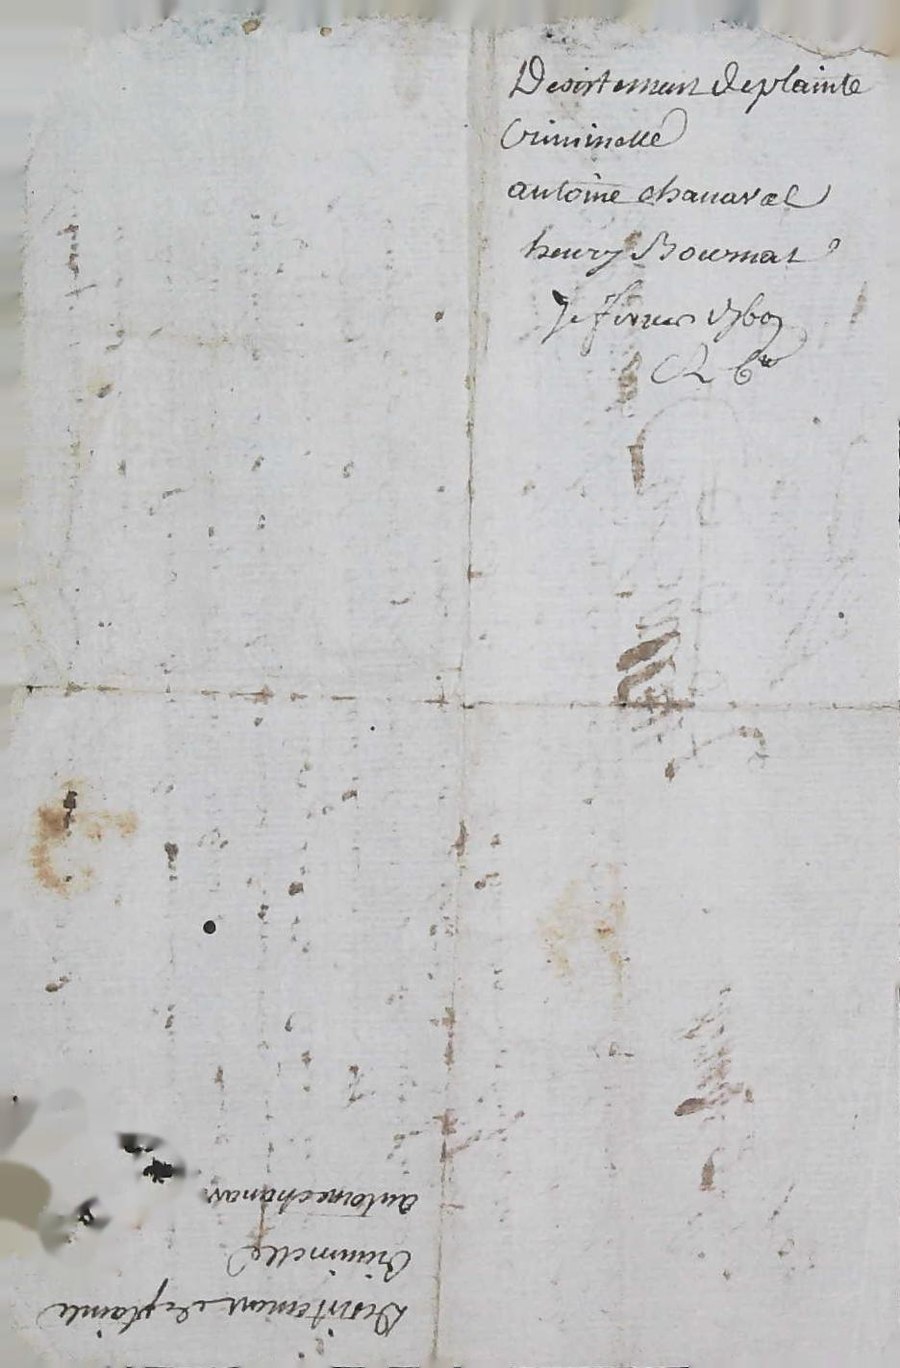 Desistement de plainte
Criminelle
antoine chanaval
henry Bournat
Je feurier 1760
Desistement de plainte
Criminelle
antoine chanav